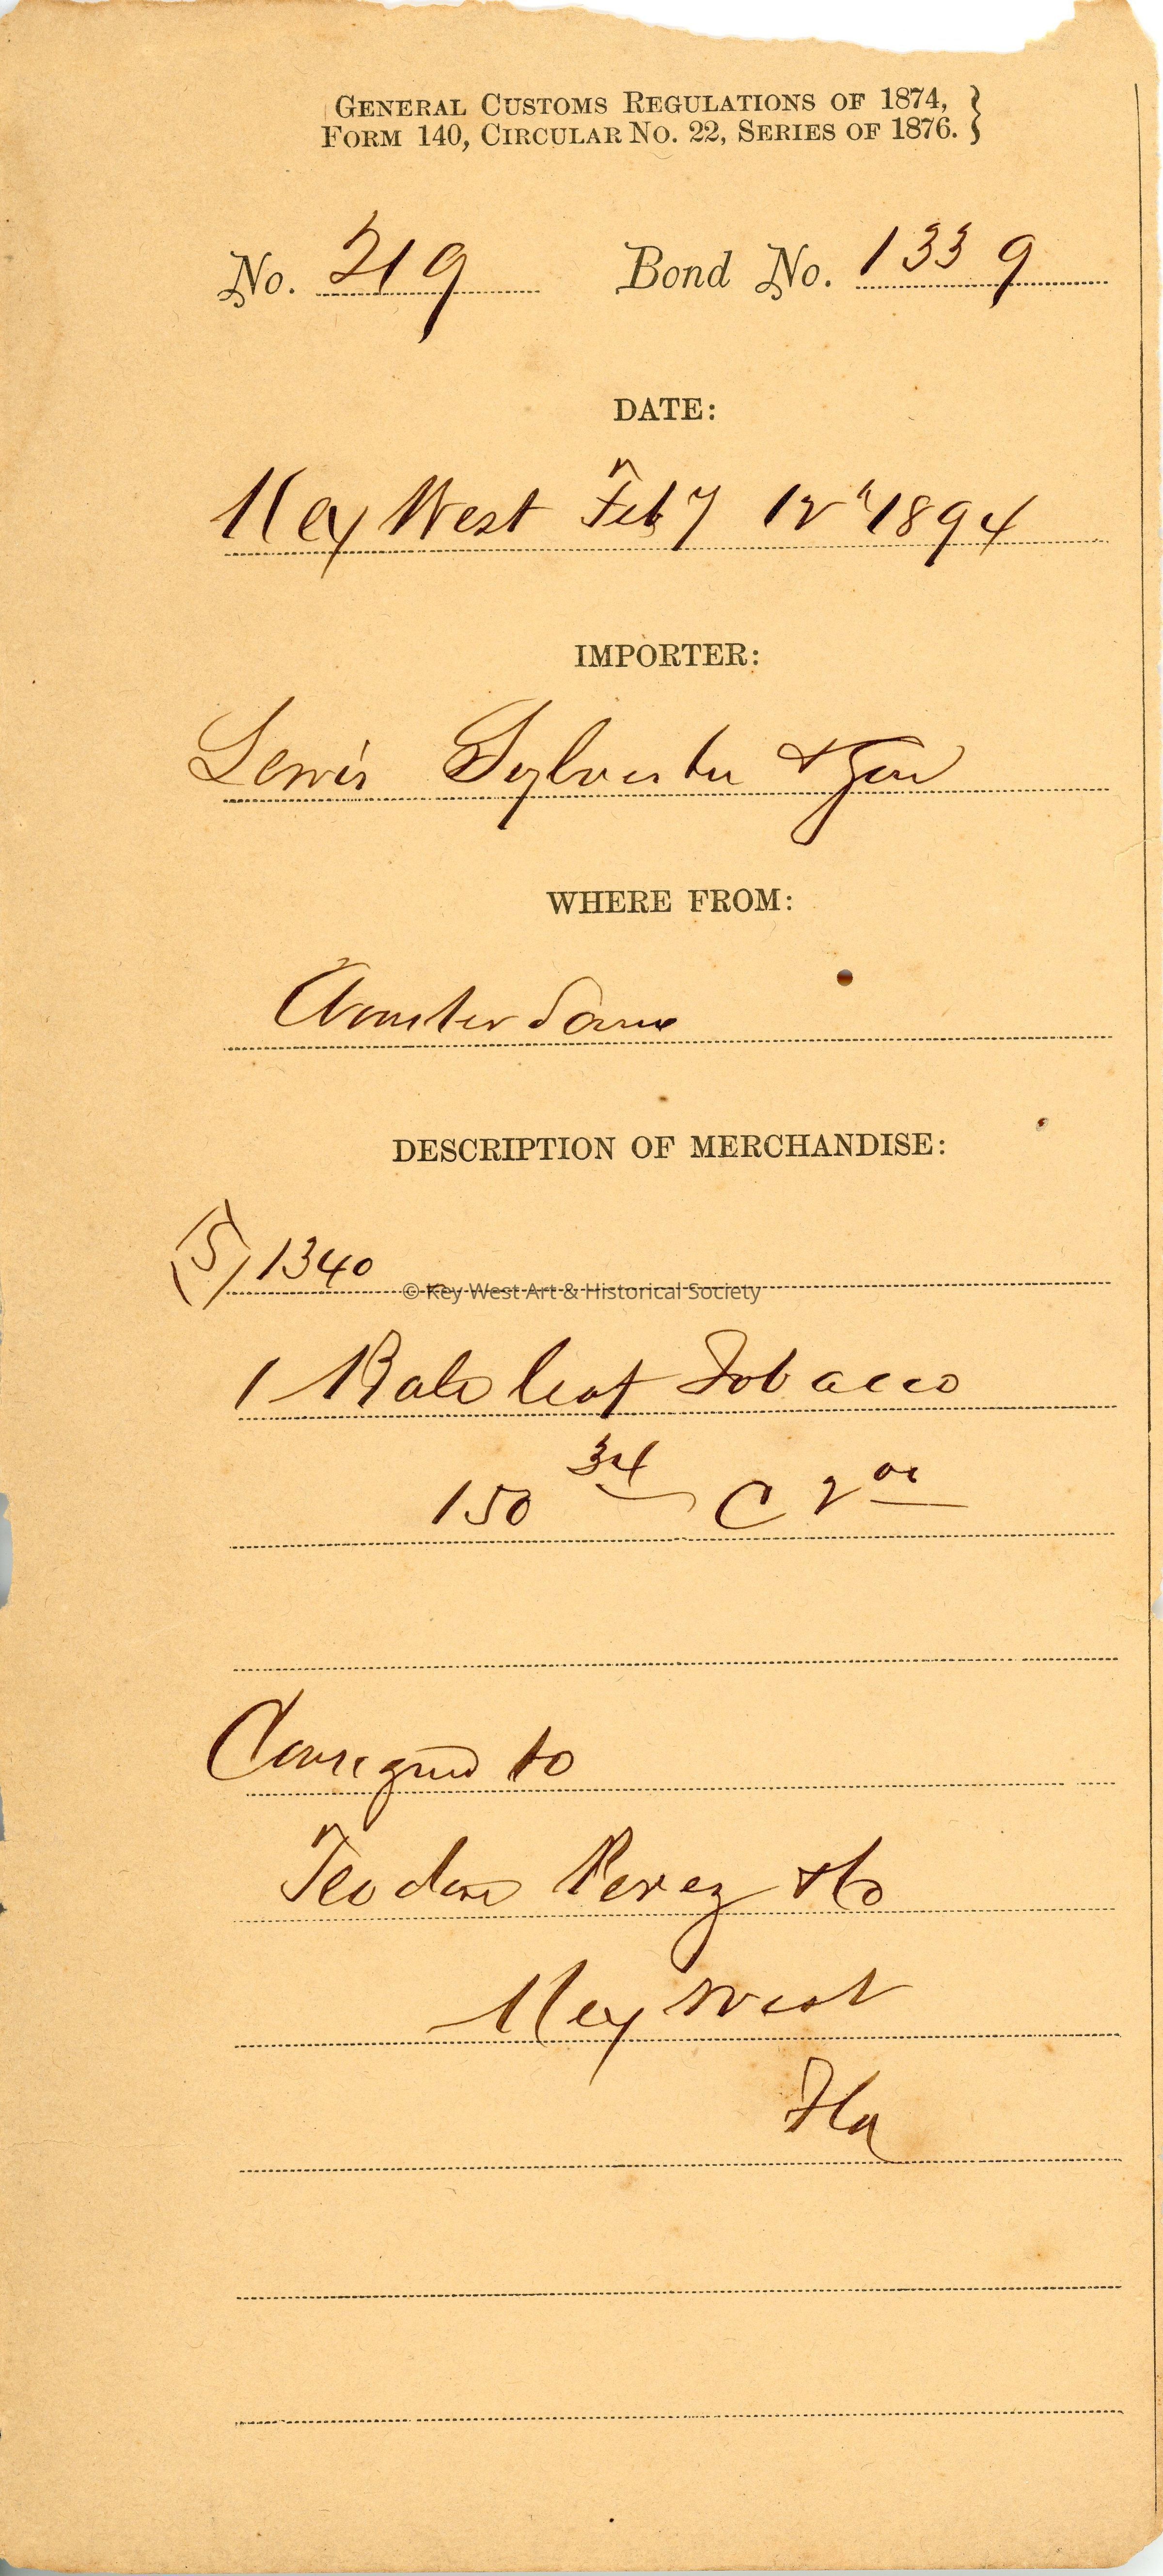 GENERAL CUSTOMS REGULATIONS OF 1874, }
FORM 140, CIRCULAR NO. 22, SERIES OF 1876. }
No. 219 Bond No. 1339
DATE:
Key West Feby 12" 1894
IMPORTER:
Lewis Sylvester & Son
WHERE FROM:
Amsterdam
DESCRIPTION OF MERCHANDISE:
(S) 1340
© Key West Art & Historical Society
1 Bale leaf Tobacco
150 34 C 2 00
Consigned to
Teodoro Perez & Co
Key West
Fla